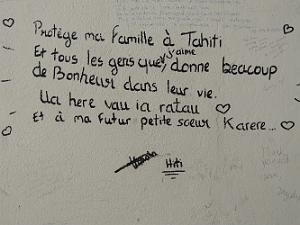 Protège ma famille à Tahiti
Et tous les gens que j'aime, donne beacoup
de Bonheur dans leur vie.
Ua here vau ia ratau
Et à ma futur petite sœur Karere...
Hiti